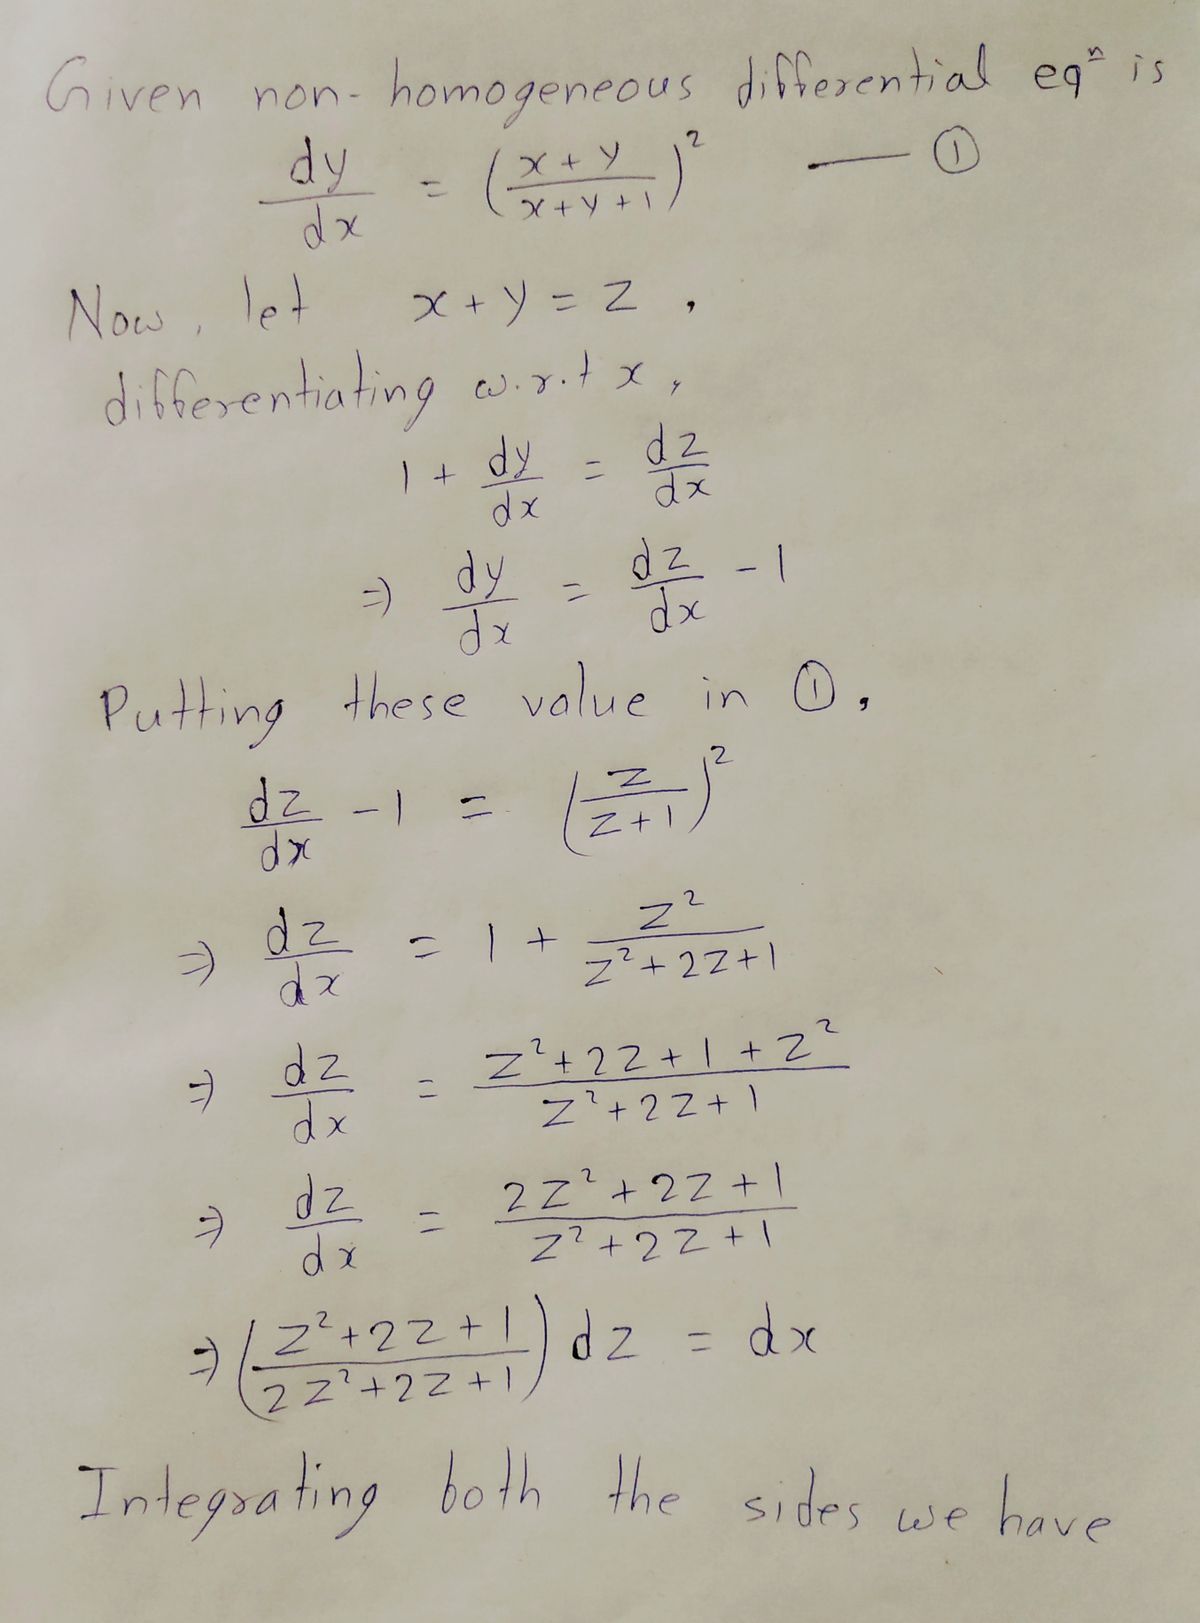 Given non-homogeneous differential eqⁿ is
dy/dx = (x+y/x+y+1)² — ①
Now, let x+y = z ,
differentiating w.r.t x,
1 + dy/dx = dz/dx
⇒ dy/dx = dz/dx - 1
Putting these value in ①,
dz/dx - 1 = (z/z+1)²
⇒ dz/dx = 1 + z²/z²+2z+1
⇒ dz/dx = z²+2z+1+z²/z²+2z+1
⇒ dz/dx = 2z²+2z+1/z²+2z+1
⇒ (z²+2z+1/2z²+2z+1) dz = dx
Integrating both the sides we have